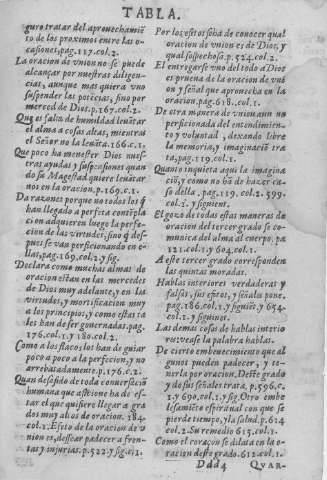 TABLA.
guro tratar del aprouechamiē
to de los proximos entre las o-
casiones, pag. 117. col. 2.
La oracion de vnion no se puede
alcançar por nuestras diligen-
cias, aunque mas quiera vno
suspender las potēcias, sino por
merced de Dios. p. 167. col. 2.
Que es falta de humildad leuātar
el alma a cosas altas, mientras
el Señor no la leuāta. 166. c. 1.
Que poco ha menester Dios nues-
tras ayudas y suspensiones quan
do sa Magestad quiere leuātar
nos en la oracion. p. 169. c. 1.
Da razones porque no todos los q̄
han llegado a perfeta contēpla
cion adquieren luego la perfe-
cion de las virtudes, sino q̄ des-
pues se van perficionando en e-
llas, pag. 169. col. 2. y sig.
Declara como muchas almas de
oracion estan en las mercedes
de Dios muy adelante, y en las
virtudes, y mortificacion muy
a los principios, y como estas ta
les han de ser gouernadas. pag.
176. col. 1. y 180. col. 2.
Como a los flacos los han de guiar
poco a poco a la perfecion, y no
arrebatadamente. p. 176. c. 2.
Quan desasido de toda conuersaciō
humana que assiento ha de es-
tar el que quisiere llegar a gra
dos muy altos de oracion. 184.
col. 1. Efeto de la oracion de v
nion es, dessear padecer afren-
tas y injurias. p. 522. y sig. c. 1.
Por los efetos se ha de conocer qual
oracion de vnion es de Dios, y
qual sospechosa. p. 524. col. 2.
El entregarse vno del todo a Dios
es prueua de la oracion de vni
on y señal que aprouecha en la
oracion. pag. 618. col. 1.
De otra manera de vnion aun no
perficionada del entendimien-
to y voluntad, dexando libre
la memoria, y imaginació tra
ta, pag. 119. col. 1.
Quanto inquieta aqui la imagina
ció, y como no hā de hazer ca-
so della. pag. 119. col. 2. 599.
col. 2. y siguient.
El gozo de todas estas maneras de
oracion del tercer grado se co-
munica al alma al cuerpo. pa
121. col. 1. y 604. col. 1.
A este tercer grado corresponden
las quintas moradas.
Hablas interiores verdaderas y
falsas, sus efetos, y señales pone.
pag. 186. col. 1. y siguiēt. y 654.
col. 1. y siguient.
Las demas cosas de hablas interio
res vease la palabra hablas.
De cierto embeuecimiento que al
gunos pueden padecer, y te-
nerla por oracion. Deste grado
y de sus señales trata, p. 596. c.
1. y 690. col. 1. y sig. Otro embe
lesamiēto espiritual con que se
pierde tiempo, y la salud. p. 614
col. 2. Su remedio 615. col. 1.
Como el coraçon se dilata en la o-
racion deste grado. 612. col. 1.
Ddd4 QVAR-